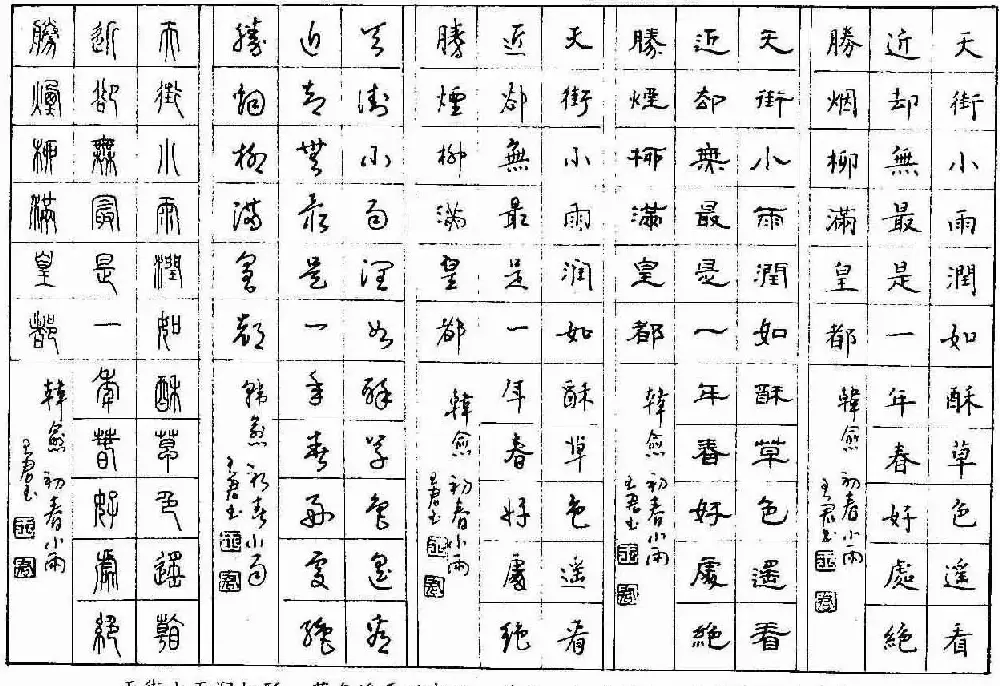 天街小雨潤如酥草色遥看
近却無最是一年春好處絕
勝烟柳滿皇都
韓愈 初春小雨
天街小雨潤如酥草色遙看
近却無最是一年春好處絕
勝煙柳滿皇都
韓愈 初春小雨
天街小雨润如酥草色遥看
近卻無最是一年春好處絕
勝煙柳滿皇都
韓愈 初春小雨
天街小雨潤如酥草色遙看
近却無最是一年春好處絕
勝烟柳滿皇都
韓愈 初春小雨
天街小雨潤如酥草色遙看
近卻無最是一年春好處絕
勝煙柳滿皇都
韓愈 初春小雨